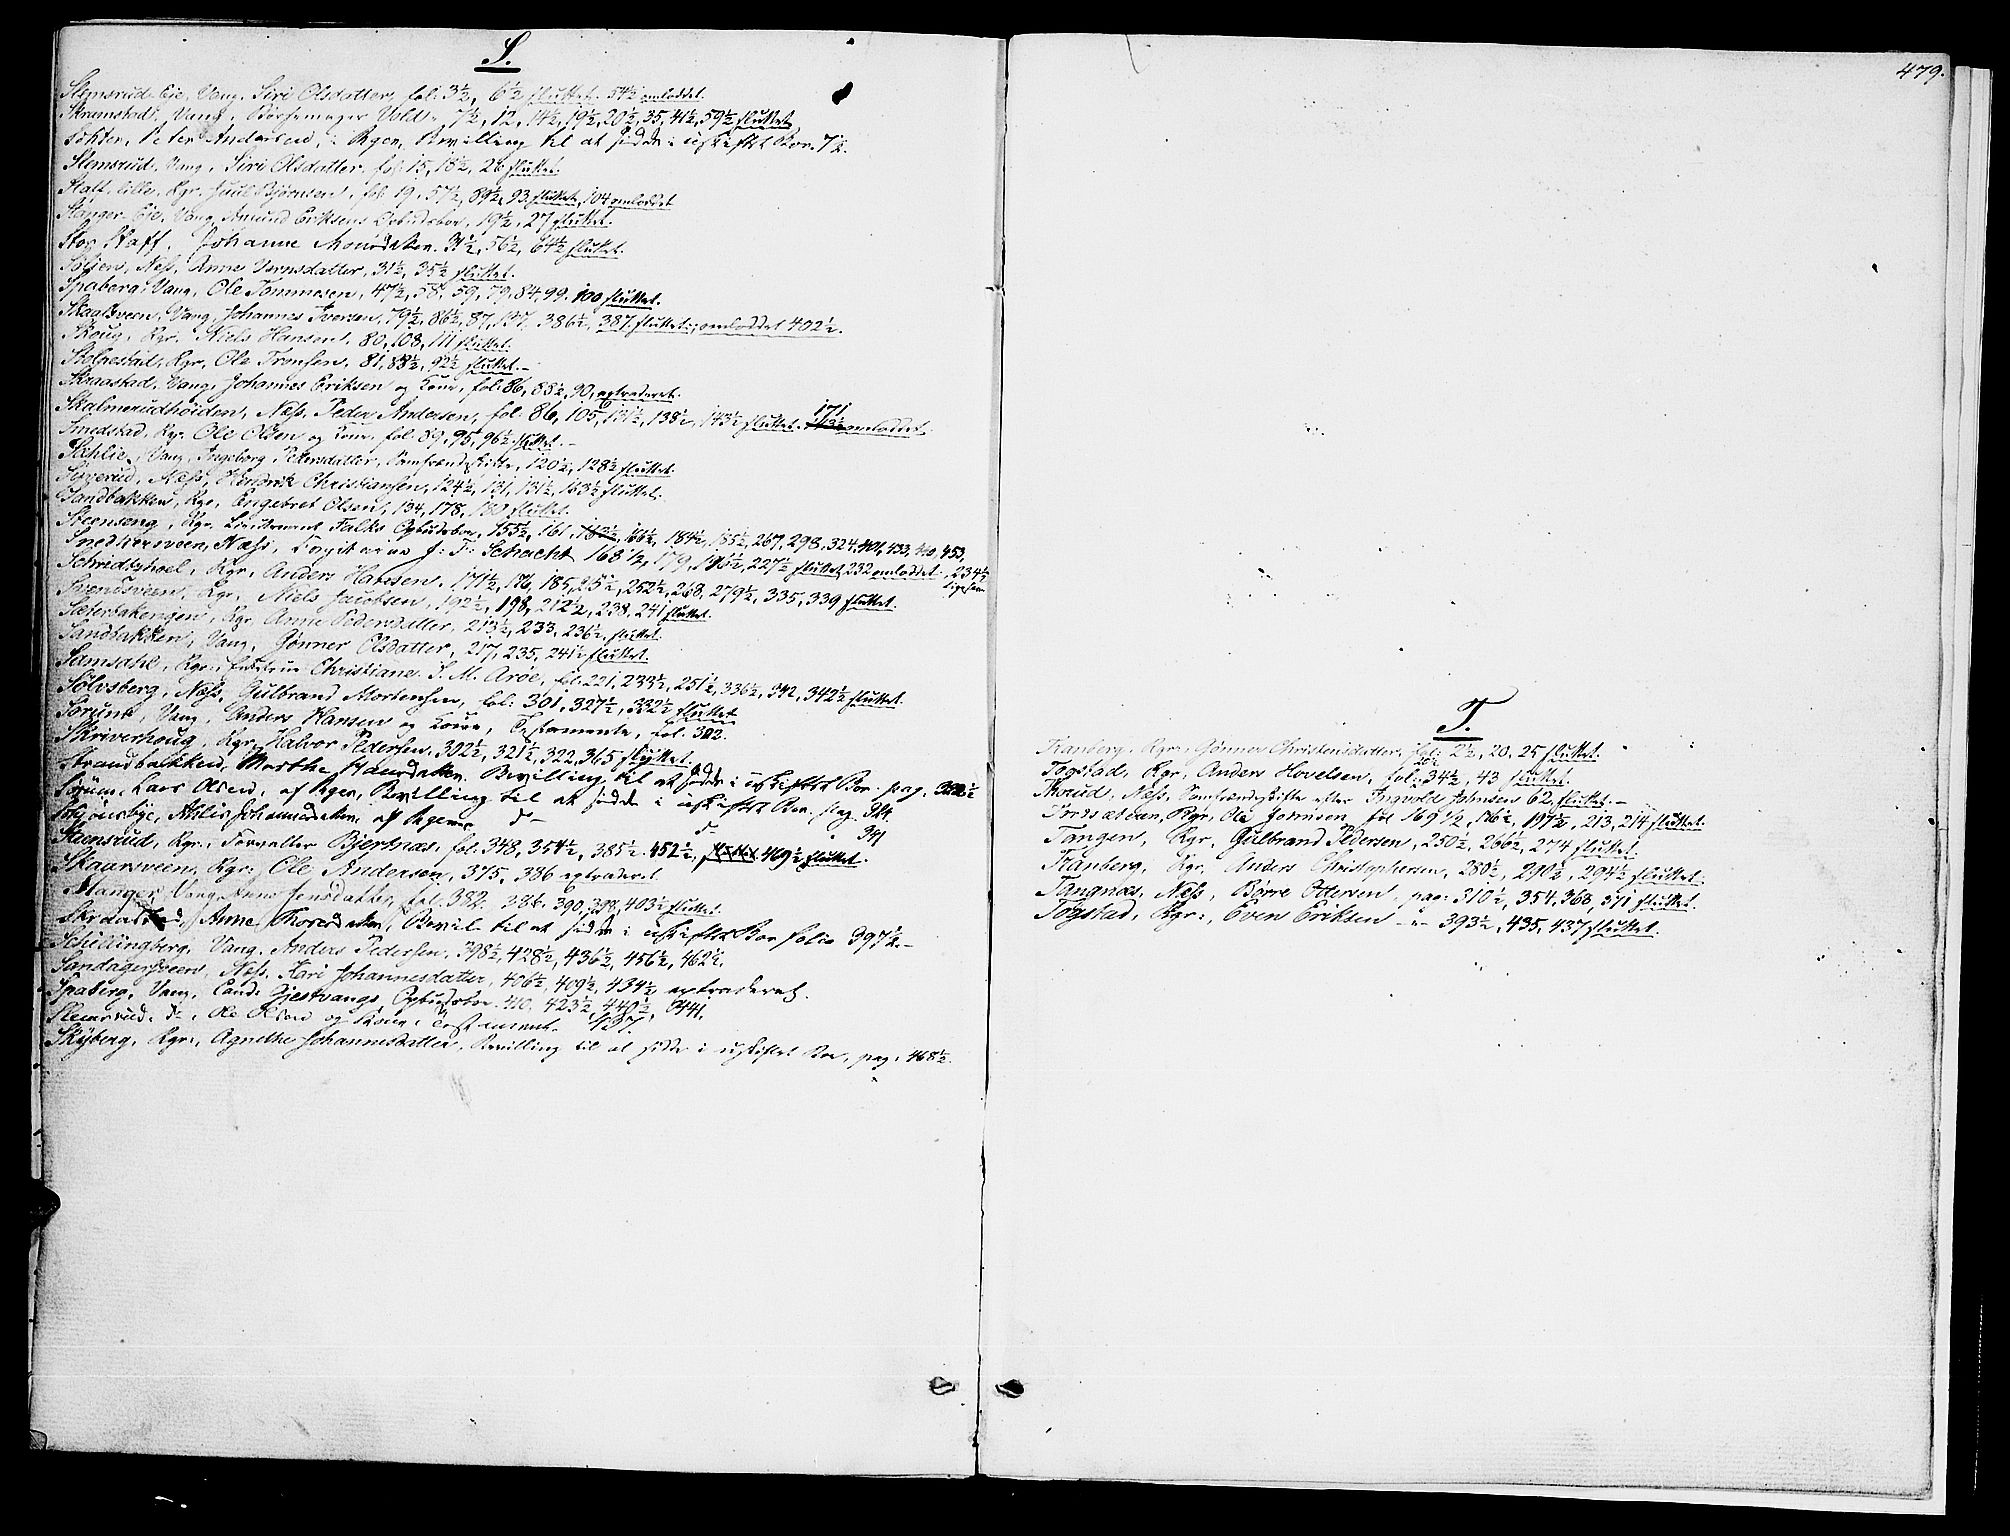 S.
Slemsrud Eie, Vang, Siri Olsdatter, fol: 3½, 6½ sluttet. 54½ omloddet.
Skramstad, Vang, Børsemager Vold, 7½, 12, 14½, 19½, 20½, 35, 41½, 59½ sluttet
Peter Andersen, i Rger, Bevilling til at sidde i uskiftet Boe. 7½.
Slemsrud, Vang, Siri Olsdatter, fol: 15, 18½, 26 sluttet.
Staff, lille, Rgr. Juul Bjørnsen, fol. 19, 57½, 89½, 93 sluttet, 104 omloddet
Stanger Eie, Vang, Amund Eriksens Opbudsboe, 19½, 27 sluttet.
Stor Staff, Johanne Monsdatter. 31½, 56½, 64½ sluttet.
Næs, Anne Vernsdatter, 31½, 35½ sluttet.
Spaberg, Vang, Ole Tommesen, 47½, 58, 59, 79, 84, 99. 100 sluttet.
Skaarsveen, Vang, Johannes Iversen, 79½, 86½, 87, 147, 386½, 387 sluttet, omloddet 402½.
Skoug, Rgr. Niels Hansen, 80, 108, 111 sluttet.
Stolpestad, Rgr. Ole Tronsen, 81, 88½, 92½ sluttet.
Skraastad, Vang, Johannes Eriksen og Kone, fol: 86, 88½, 90, extraderet.
Skalmerudhøiden, Næs, Peder Andersen, fol: 86, 105, 131½, 138½, 143½ sluttet. 171 omloddet.
Smedstad, Rgr. Ole Olsen og Kone, fol. 89, 95, 96½ sluttet.
Sæhlie, Vang, Ingeborg Petersdatter, Samfrændskifte, 120½, 128½ sluttet.
Næss, Hendrik Christiansen, 124½, 131, 131½, 163½ sluttet.
Sandbakken, Rgr, Engebret Olsen, 134, 178, 180 sluttet.
Steenseng, Rgr. Lieutenant Falks Opbudsboe, 155½, 161, 166½, 184½, 185½, 267, 298, 324, 401, 433, 440, 453.
Snedkersveen, Næss, J: F: Schacht 168½, 179, 195½, 227½ sluttet, 232 omloddet. 234½ ligesaa
Schmidtshoel, Rgr, Anders Hansen, 171½, 176, 185, 215½, 252½, 268, 279½, 335, 339 sluttet.
Svendsveen, Rgr, Niels Jacobsen, 192½, 198, 212½, 238, 241 sluttet.
Sæterbakengen, Rgr. Anne Pedersdatter, 213½, 233, 236½, sluttet.
Sandbakken, Vang, Gønner Olsdatter, 217, 235, 241½ sluttet.
Samsahl, Rgr., Christiane S. M. Arøe, fol: 221, 233½, 251½, 336½, 342, 342½ sluttet.
Sølvsberg, Næss, Gulbrand Mortensen, fol: 301, 327½, 332½ sluttet
Sørum, Vang, Anders Hansen og Kone, Testamente, fol. 302.
Skriverhoug, Rgr, Halvor Pedersen, 302½, 321½, 322, 365 sluttet.
Strandbakken, Marthe Hansdatter, Bevilling til at sidde i uskiftet Boe pag. 322½
Sørum, Lars Olsen, af Rger, Bevilling til at sidde i uskiftet Boe. pag. 324.
Johannesdatter, af Rgerne d– d– 341
Steensrud, Rgr, Forvalter Bjerknæs, fol. 348, 354½, 385½, 452½, 469½ sluttet.
Skaarsveen, Rgr, Ole Andersen, 375, 386 extraderet
Stanger, Vang, Jensdatter, fol. 382, 386, 390, 398, 403½ sluttet.
Anne Thoresdatter, Bevil– til at sidde i uskiftet Boe folio 397½.–
Schillingberg, Vang, Anders Pedersen, 398½, 428½, 436½, 456½, 462½.
Sandagersveen, Næss, Kari Johannesdatter, 406½, 409½, 434½ extraderet.
Spaberg, Vang, Cand: Gjestvangs Opbudsboe. 410. 423½, 440½, 441.
Slemsrud, d–, Ole Olsen og Kone, Testament. 437.
Skyberg, Rgr:, Agnethe Johannesdatter, Bevilling til at sidde i uskiftet Boe, pag: 468½.
479.
T.
Tranberg, Rgr:, Gønner Christensdatter, fol: 2½, 20, 25 sluttet.
Togstad, Rgr, Anders Hovelsen, fol: 34½, 43 sluttet.
Næss, Samfrændskifte efter Ingvold Johnsen 62, sluttet.–
Rgr, Ole Jonnsen fol 169½, 176½, 197½, 213, 214 sluttet.
Tangen, Rgr, Gulbrand Pedersen, 250½, 266½, 274 sluttet.
Tranberg, Rgr. Anders Christophersen, 280½, 290½, 294½ sluttet.
Tangnæs, Næss, Børre Ottersen, pag: 310½, 354, 368, 371 sluttet.
Togstad, Rgr:, Even Eriksen – „ – 393½, 435, 437 sluttet.